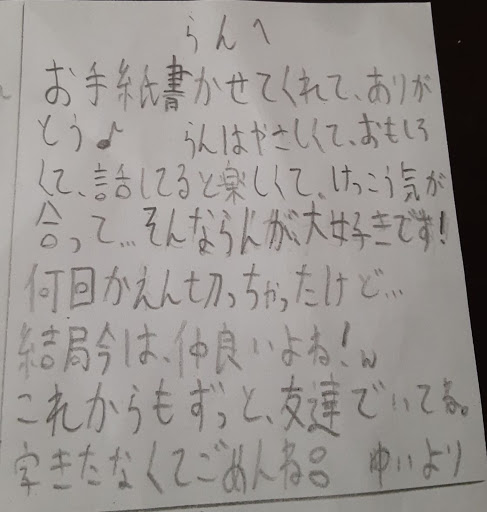 らんへ
お手紙書かせてくれて、ありが
とう♪ らんはやさしくて、おもしろ
くて、話してると楽しくて、けっこう気が
合って…そんならんが、大好きです!
何回かえん切っちゃったけど…
結局今は、仲良いよね!w
これからもずっと、友達でいてね。
字きたなくてごめんね ゆいより